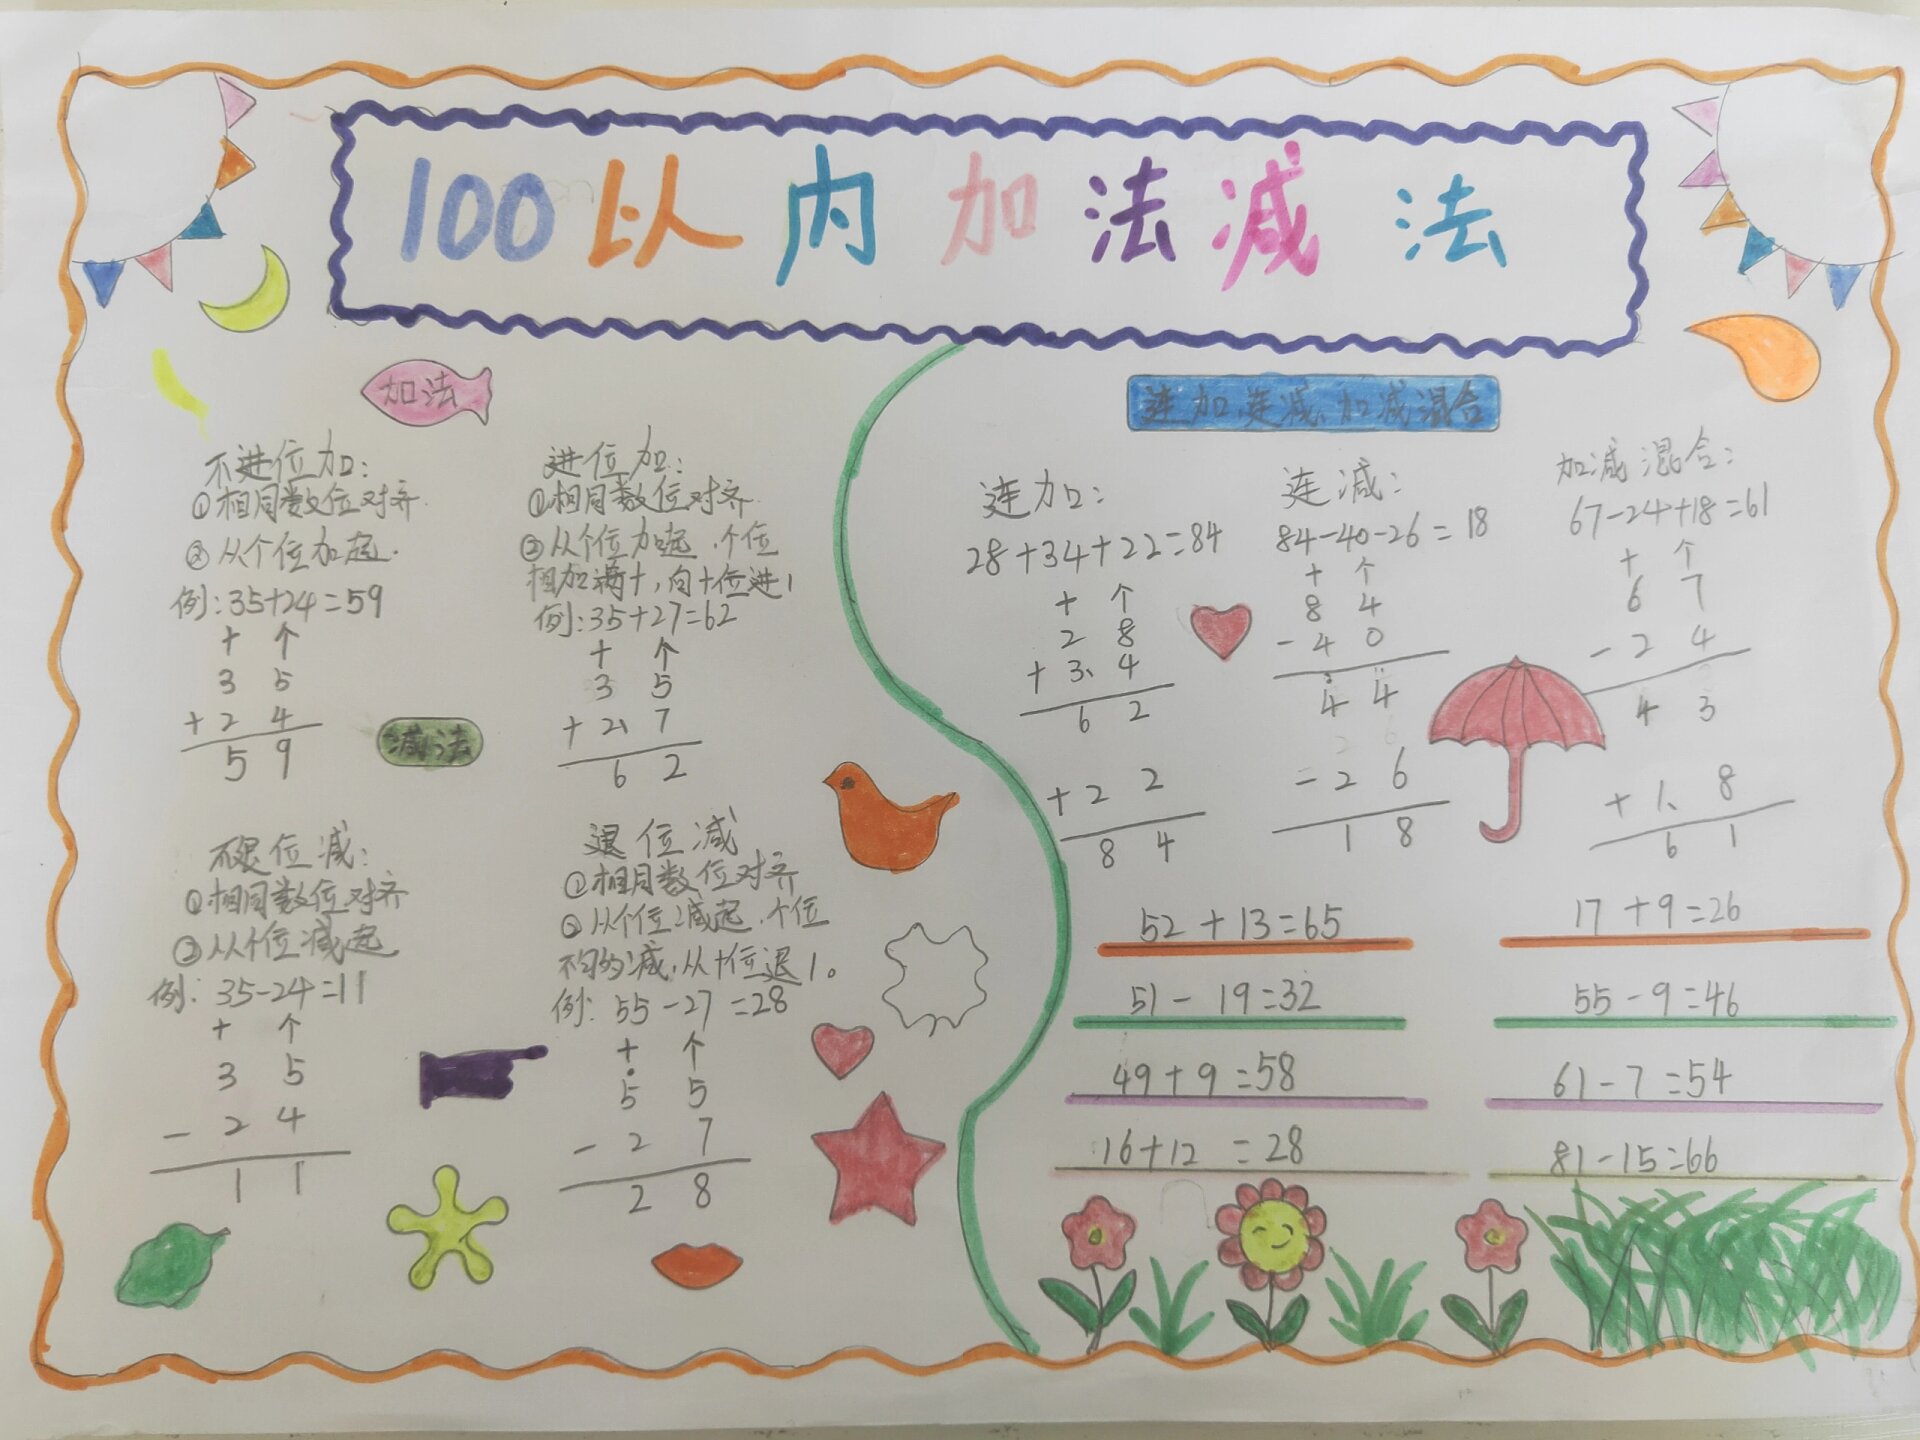 100以内加法减法
加法
不进位加:
①相同数位对齐.
②从个位加起.
例:35+24=59
十 个
3 5
+2 4
5 9
进位加:
①相同数位对齐.
②从个位加起.个位
相加满十,向十位进1
例:35+27=62
十 个
3 5
+2 7
6 2
减法
不退位减:
①相同数位对齐
②从个位减起
例:35-24=11
十 个
3 5
-2 4
1 1
退位减
①相同数位对齐
②从个位减起.个位
不够减,从十位退1。
例:55-27=28
十 个
5 5
-2 7
2 8
连加、连减、加减混合
连加:
28+34+22=84
十 个
2 8
+3 4
6 2
+2 2
8 4
连减:
84-40-26=18
十 个
8 4
-4 0
4 4
-2 6
1 8
加减混合:
67-24+18=61
十 个
6 7
-2 4
4 3
+1 8
6 1
52+13=65
17+9=26
51-19=32
55-9=46
49+9=58
61-7=54
16+12=28
81-15=66